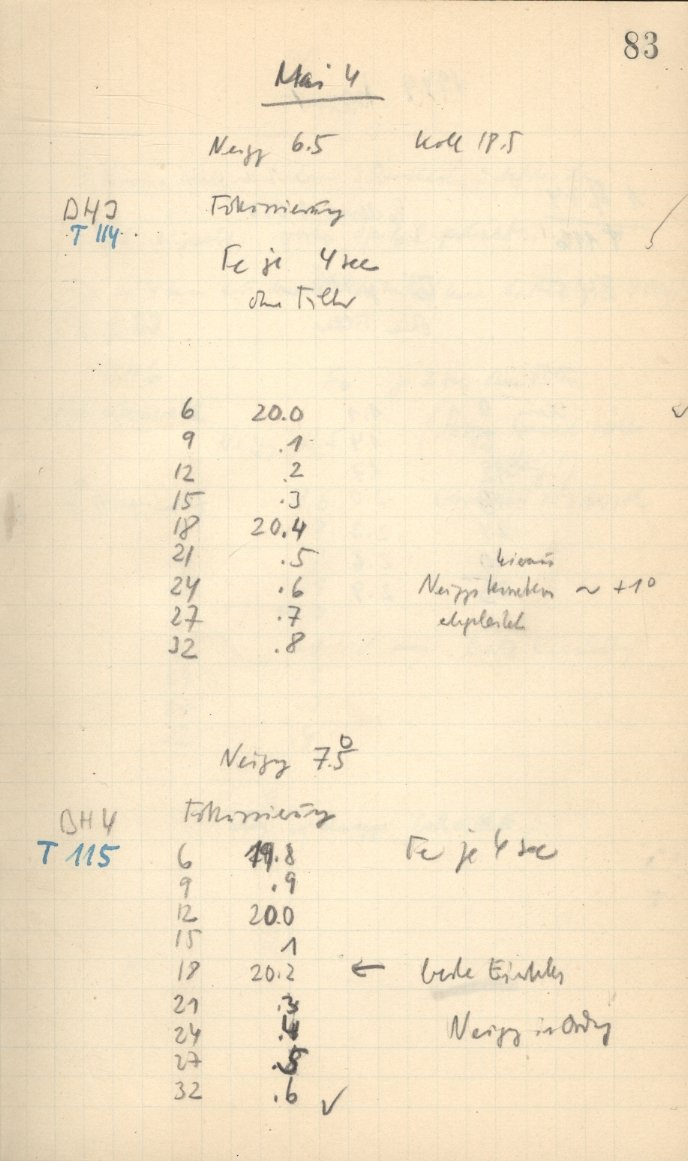 83
Mai 4
Neigg 6.5 Koll 18.5
BH3 Fokussierung
T 114
Fe je 4 sec
ohne Filter
6 20.0
9 .1
12 .2
15 .3
18 20.4
21 .5
24 .6
27 .7
32 .8
hieraus
~ +1°
Neigg 7.5
BH4 Fokussierung
T 115
Fe je 4 sec
6 19.8
9 .9
12 20.0
15 1
18 20.2 ← beste
21 .3
24 .4
27 .5
32 .6 ✓
Neigg in Ordng